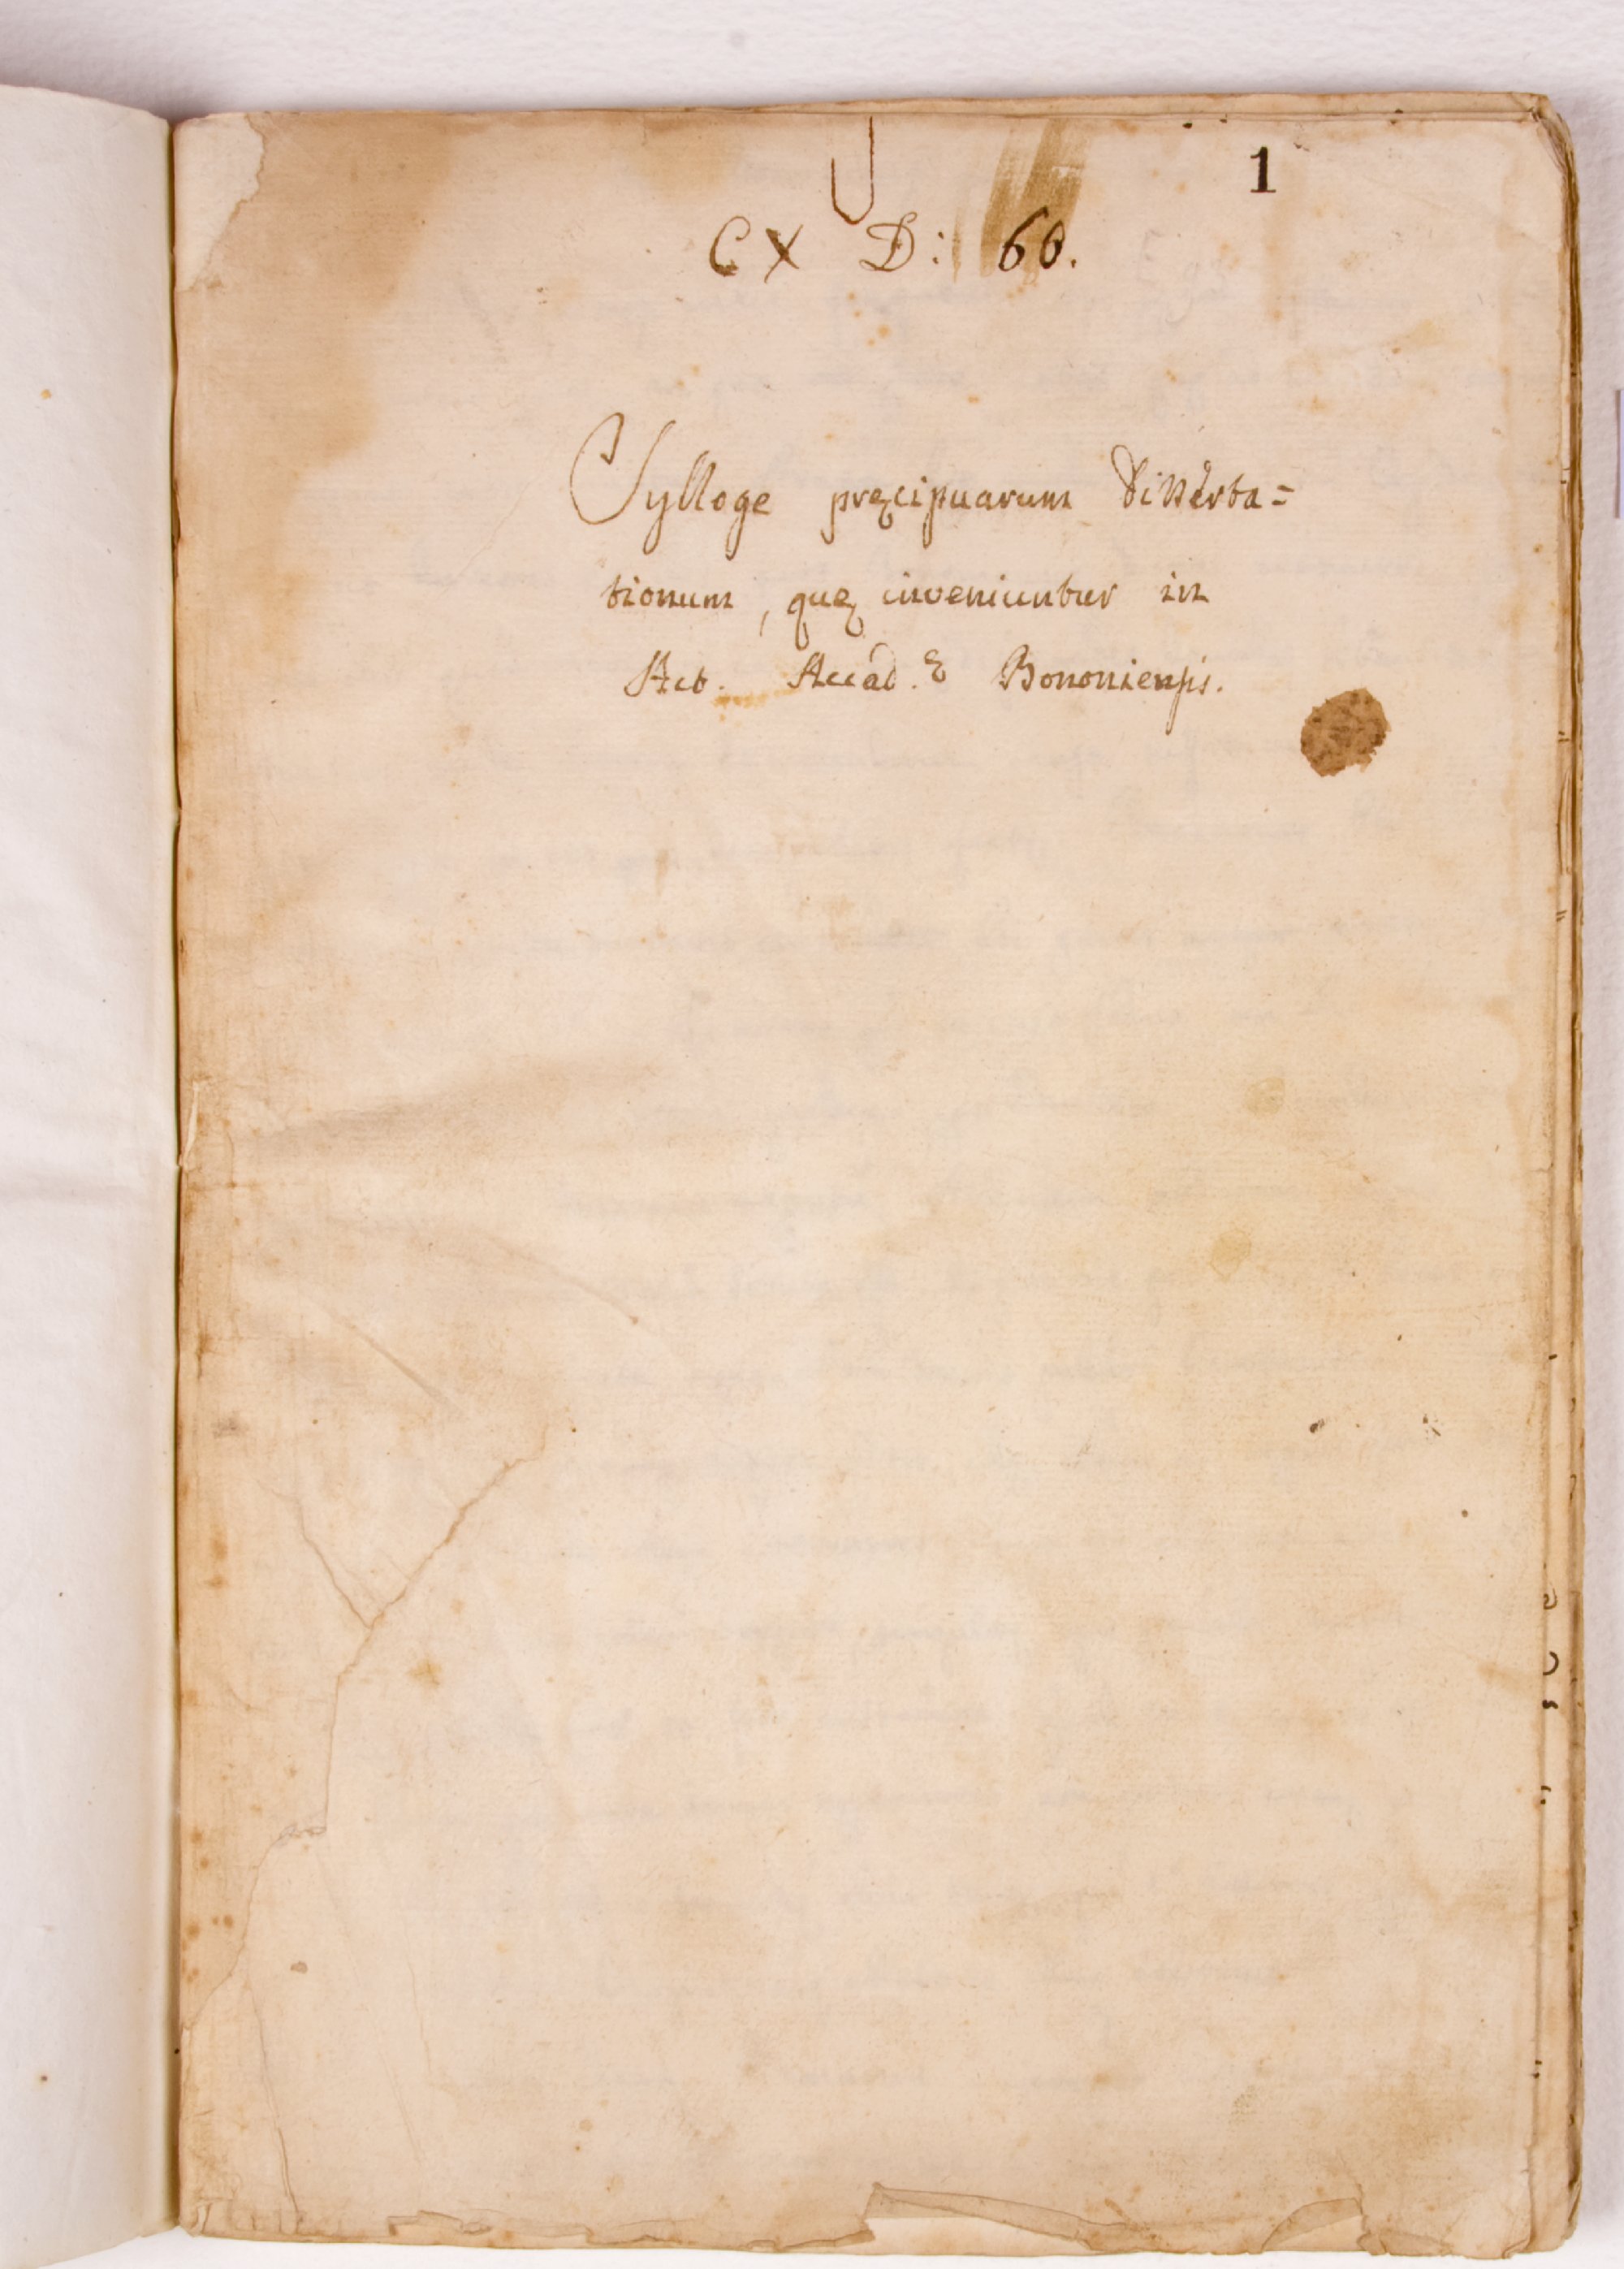 1
CX D: 60.
Sylloge pręcipuarum Disserta=
tionum, quę inveniuntur in
Act. Accad.ę Bononiensis.